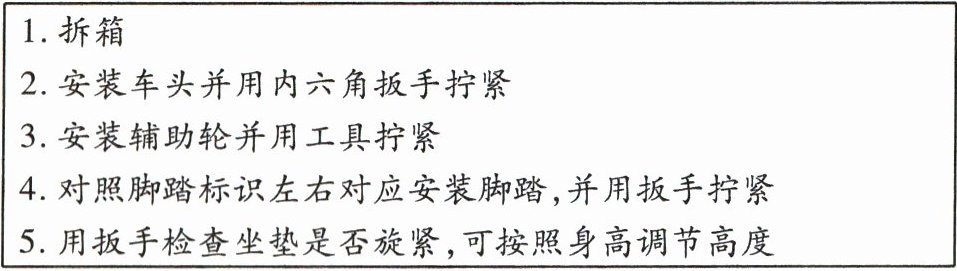 1. 拆箱
2. 安装车头并用内六角扳手拧紧
3. 安装辅助轮并用工具拧紧
4. 对照脚踏标识左右对应安装脚踏,并用扳手拧紧
5. 用扳手检查坐垫是否旋紧,可按照身高调节高度